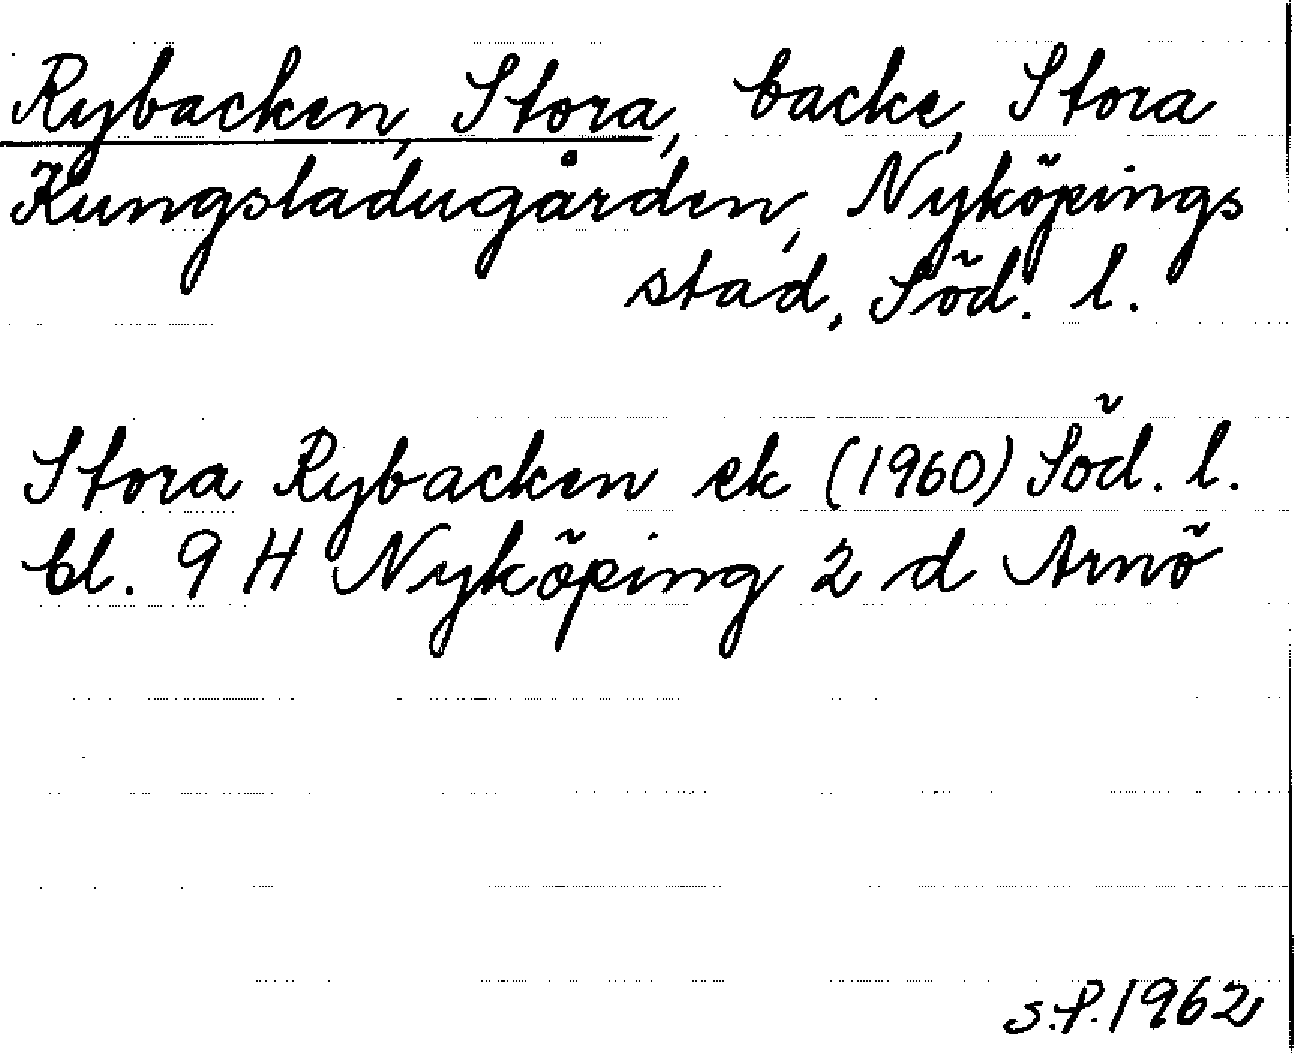 Rybacken, Stora, backe, Stora
Kungsladugården, Nyköpings
stad, Söd. l.
Stora Rybacken ek (1960) Söd. l.
bl. 9 H Nyköping 2 d Arnö
S.P. 1962